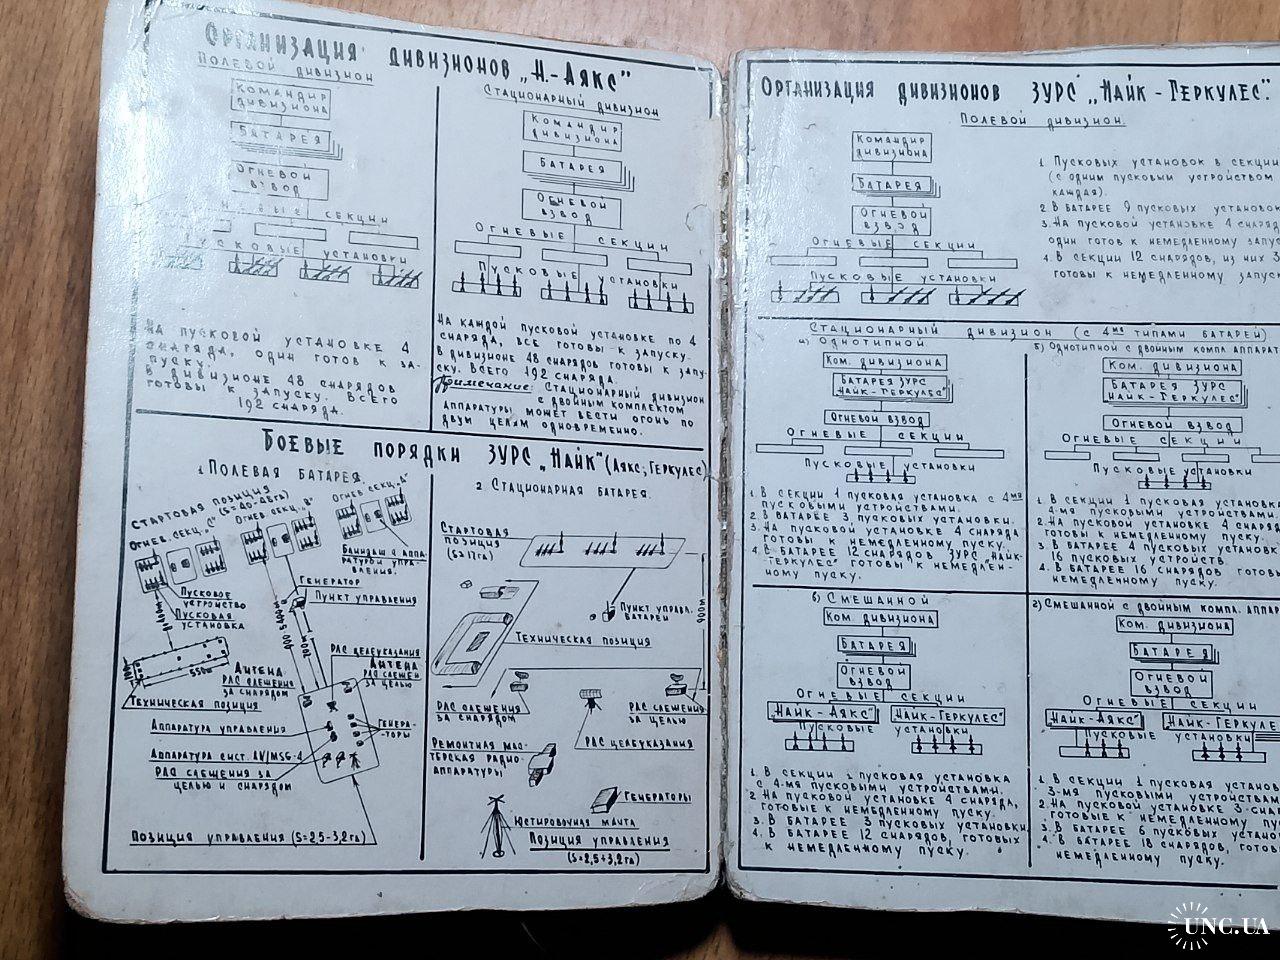 Организация дивизионов „Н.-Аякс"
Полевой дивизион
Командир
дивизиона
Батарея
Огневой
взвод
секции
Пусковые установки
На пусковой установке 4
снаряда, один готов к за-
пуску.
В дивизионе 48 снарядов
готовы к запуску. Всего
192 снаряда.
Стационарный дивизион
Командир
дивизиона
Батарея
Огневой
взвод
Огневые секции
Пусковые установки
На каждой пусковой установке по 4
снаряда, все готовы к запуску.
В дивизионе 48 снарядов готовы к запу-
ску. Всего 192 снаряда.
Примечание: Стационарный дивизион
с двойным комплектом
аппаратуры может вести огонь по
двум целям одновременно.
Боевые порядки ЗУРС „Найк" (Аякс, Геркулес)
1. Полевая батарея.
Стартовая позиция
(S=40-48га)
Огнев. секц. „С"
Огнев. секц. „В"
Огнев. секц. „А"
Блиндаж с аппа-
ратурой упра-
вления.
Генератор
Пункт управления
Пусковое
устройство
Пусковая
установка
550м
Техническая позиция
Антена
РЛС слешения
за снарядом
РЛС целеуказания
Антена
РЛС слешен.
за целью
Аппаратура управления
Генера-
-торы
Аппаратура сист. AN/MSG-4
РЛС слешения за
целью и снарядом
Позиция управления (S=2,5-3,2га)
2. Стационарная батарея.
Стартовая
позиция
(S≥17га)
900м
Пункт управл.
батареи
Техническая позиция
РЛС слешения
за снарядом
РЛС слешения
за целью
РЛС целеуказания
Ремонтная мас-
терская радио-
аппаратуры
Генераторы
Юстировочная мачта
Позиция управления
(S=2,5÷3,2га)
Организация дивизионов ЗУРС „Найк-Геркулес".
Полевой дивизион.
Командир
дивизиона
Батарея
Огневой
взвод
Огневые секции
Пусковые установки
1. Пусковых установок в секции
(с одним пусковым устройством
каждая).
2. В батарее 9 пусковых установок
3. На пусковой установке 4 снаряда
один готов к немедленному запус
4. В секции 12 снарядов, из них 3
готовы к немедленному запуск
Стационарный дивизион (с 4мя типами батарей)
а) Однотипной
Ком. дивизиона
Батарея ЗУРС
„Найк-Геркулес"
Огневой взвод
Огневые секции
Пусковые установки
1. В секции 1 пусковая установка с 4мя
пусковыми устройствами.
2. В батарее 3 пусковых установки.
3. На пусковой установке 4 снаряда
готовы к немедленному пуску.
4. В батарее 12 снарядов ЗУРС „Найк-
Геркулес" готовы к немедлен-
ному пуску.
б) Однотипной с двойным компл. аппарат
Ком. дивизиона
Батарея ЗУРС
„Найк-Геркулес"
Огневой взвод
Огневые секции
Пусковые установки
1. В секции 1 пусковая установка
4-мя пусковыми устройствами.
2. На пусковой установке 4 снаряда
готовы к немедленному пуску.
3. В батарее 4 пусковых установк
16 пусковых устройств.
4. В батарее 16 снарядов готовы
немедленному пуску.
в) Смешанной
Ком. дивизиона
Батарея
Огневой
взвод
Огневые секции
„Найк-Аякс" „Найк-Геркулес"
Пусковые установки
1. В секции 1 пусковая установка
с 4-мя пусковыми устройствами.
2. На пусковой установке 4 снаряда,
готовые к немедленному пуску.
3. В батарее 3 пусковых установки.
4. В батарее 12 снарядов, готовых
к немедленному пуску.
г) Смешанной с двойным компл. аппар
Ком. дивизиона
Батарея
Огневой
взвод
Огневые секции
„Найк-Аякс" „Найк-Геркулес
Пусковые установки
1. В секции 1 пусковая установ
3-мя пусковыми устройствам
2. На пусковой установке 3 снар
готовые к немедленному пу
3. В батарее 6 пусковых устано
4. В батарее 18 снарядов, готов
немедленному пуску.
UNC.UA